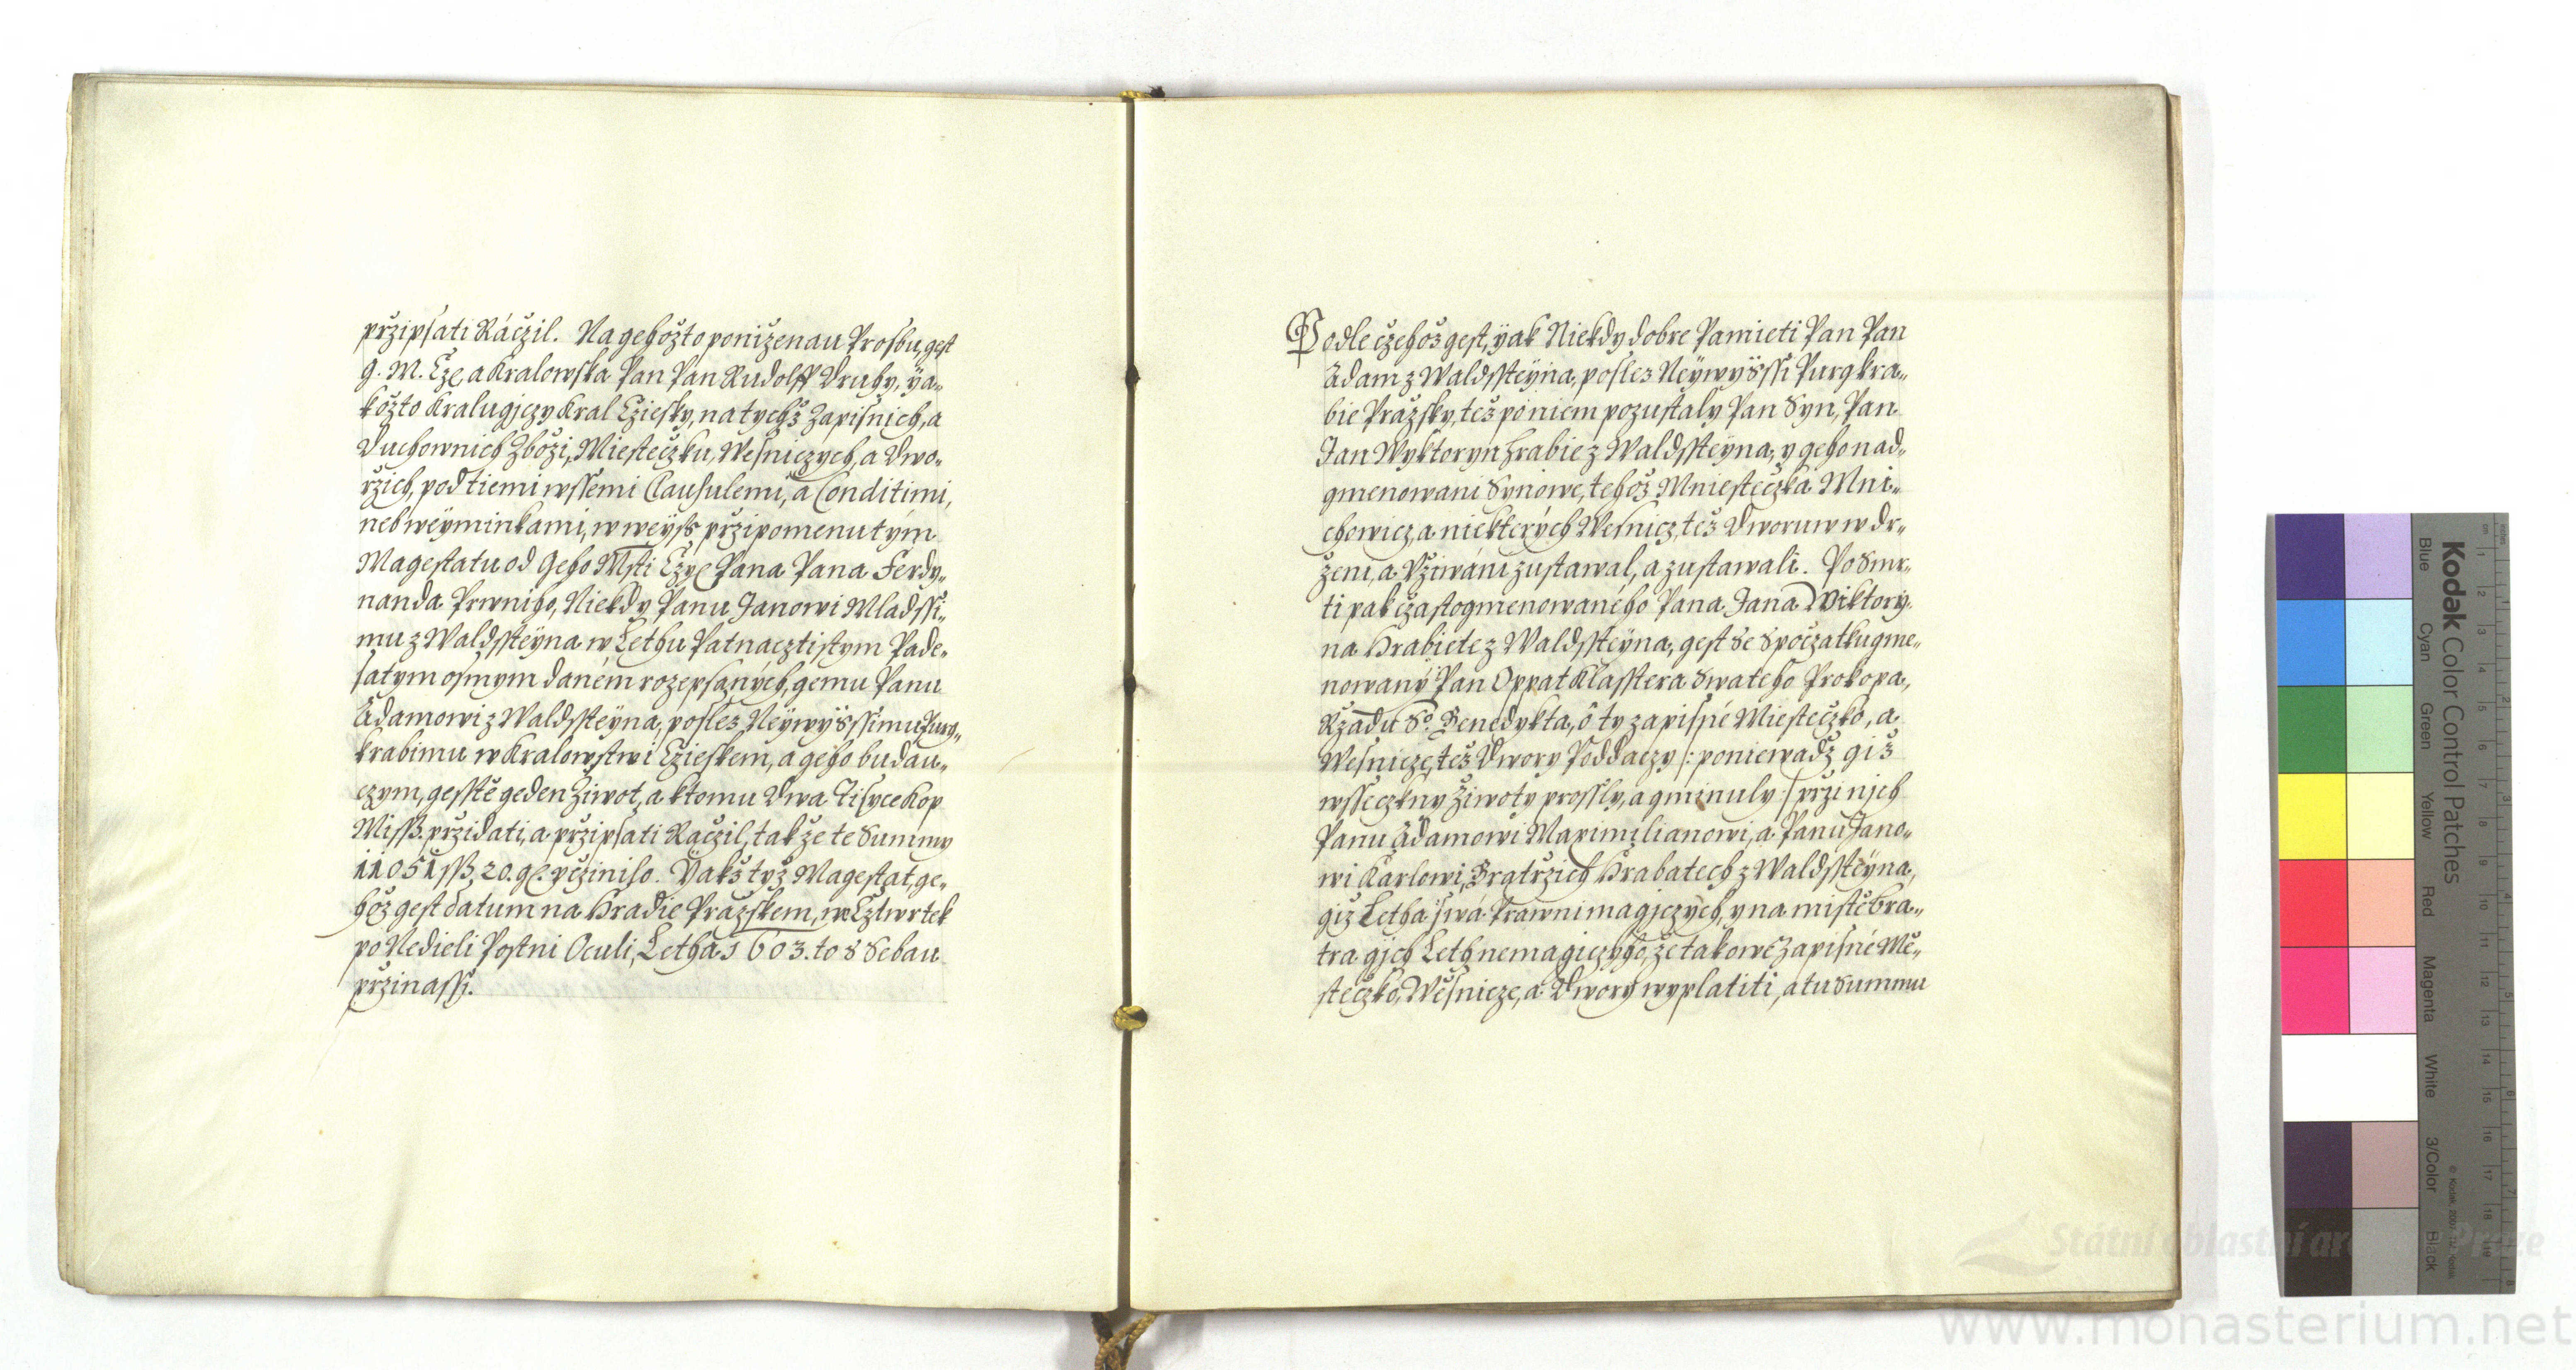 pržipsati Ráčzil. Na gehožto poniženau Prosbu, gest
G. M. Cze. a Kralowska Pan Pan Rudolff Druhy, ya„
kožto Kralugjczy Kral Cziesky, na tychž Zapisnich, a
Duchownich Zboži, Miestečzku, Wesniczych, a Dwo„
ržich, pod tiemi wssemi Clausulemi, a Conditimi,
neb weyminkami, w weyss pržipomenutým
Magestatu od Geho Msti Czye Pana Pana Ferdy„
nanda Prwniho, Niekdy Panu Janowi Mladssi„
mu z Waldssteyna w Lethu Patnacztistym Pade„
satym osmym daném rozepsaných, gemu Panu
Adamowi z Waldssteyna, poslez Neywyšssimu Purg„
krabimu w Kralowstwi Czieskem, a geho budau„
czym, gesstě geden Žiwot, a k tomu Dwa Tisyce Kop
Miss. pržidati, a pržipsati Račzil, tak že te Summy
11051 ssß, 20. ge. vczinilo. Yakž tyž Magestat, ge„
hož gest datum na Hradie Pražskem, w Cztwrtek
po Nedieli Postni Oculi, Letha 1603. to s sebau
pržinassi.
Podle čzehož gest, yak Niekdy dobre Pamieti Pan Pan
Adam z Waldssteyna, poslez Neywyšssi Purgkra„
bie Pražsky, tež po niem pozustaly Pan Syn, Pan
Jan Wyktoryn Hrabie z Waldssteyna, y geho nad„
gmenowani Synowe, tehož Mniestečzka Mni„
chowicz, a niekterých Wesnicz, tež Dworuw w dr„
ženi, a Vžiwáni zustawal, a zustawali. Po Smr„
ti pak čzastogmenowaného Pana Jana Wiktory„
na Hrabiete z Waldssteyna, gest se s počzatku gme„
nowaný Pan Oppat Klasstera Swateho Prokopa,
Ržadu So. Benedykta, o ty zapisné Miestečzko, a
Wesnicze, tež Dwory Poddaczy /: poniewadž giž
wsseczkny Žiwoty prossly, a gminuly :/ prži njch
Panu Adamowi Maximilianowi, a Panu Jano„
wi Karlowi, Bratržich Hrabatech z Waldssteyna,
giž Letha swá Prawni magjczých, y na mistě bra„
tra gjch Leth nemagiczyho, že takowé Zapisné Mě„
stečzko, Wěsnicze, a Dwory wyplatiti, a tu Summu
Státní oblastní archiv v Praze
www.monasterium.net
Kodak Color Control Patches
Blue Cyan Green Yellow Red Magenta White 3/Color Black